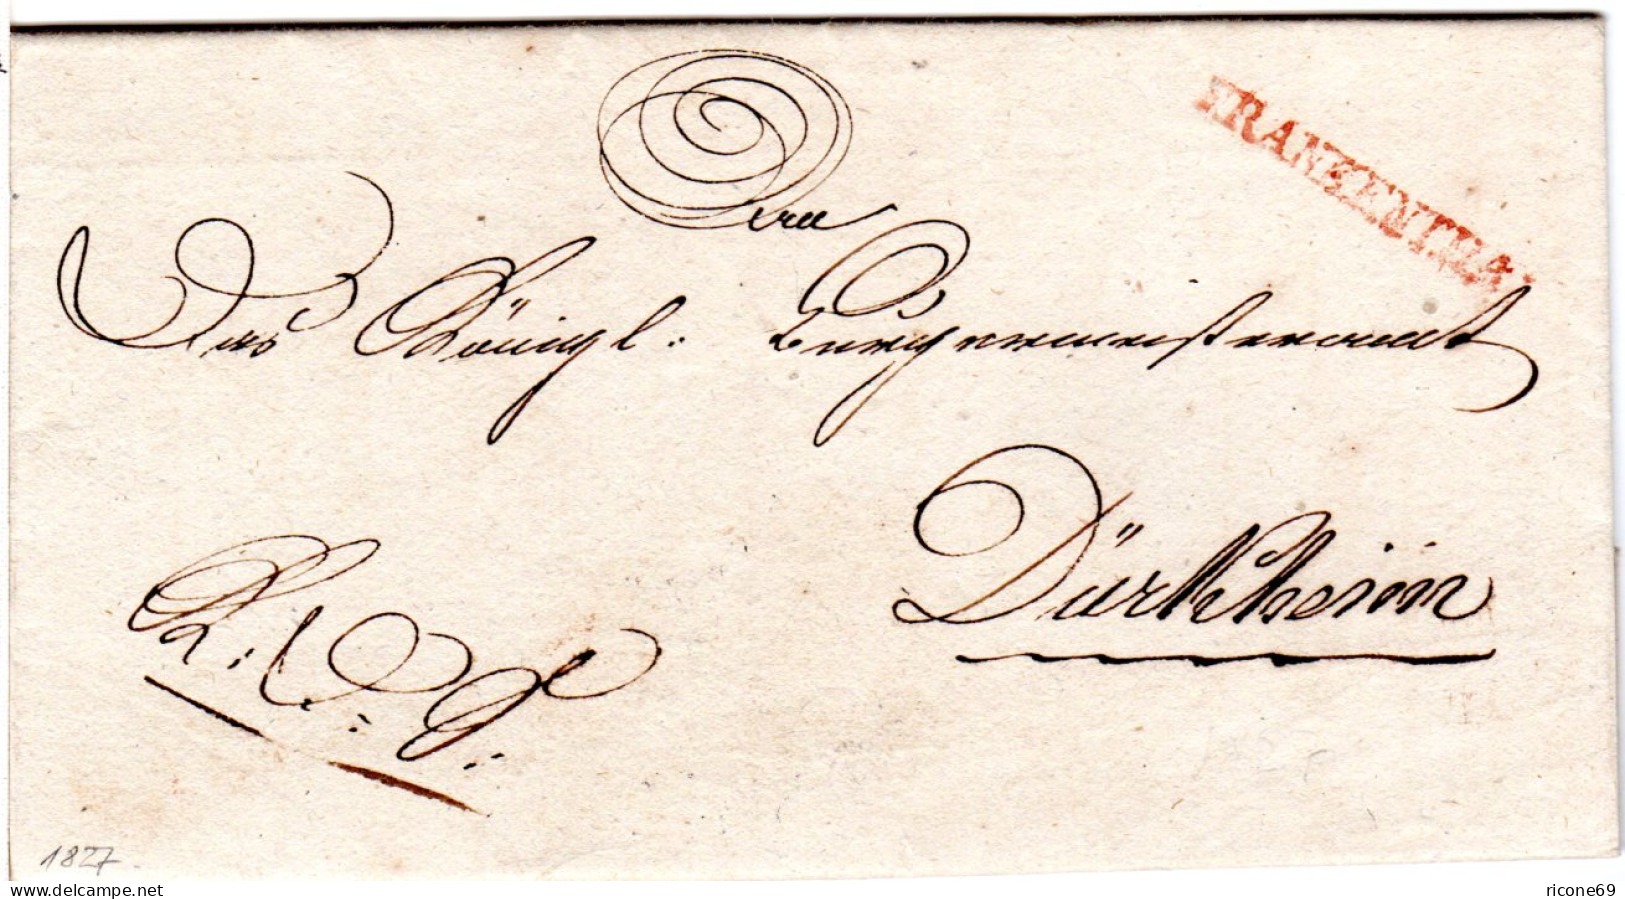 FRANKENTHAL
An
Das Königl. Bürgermeisteramt
Dürkheim
R. D. S.
1827
www.delcampe.net
ricone69